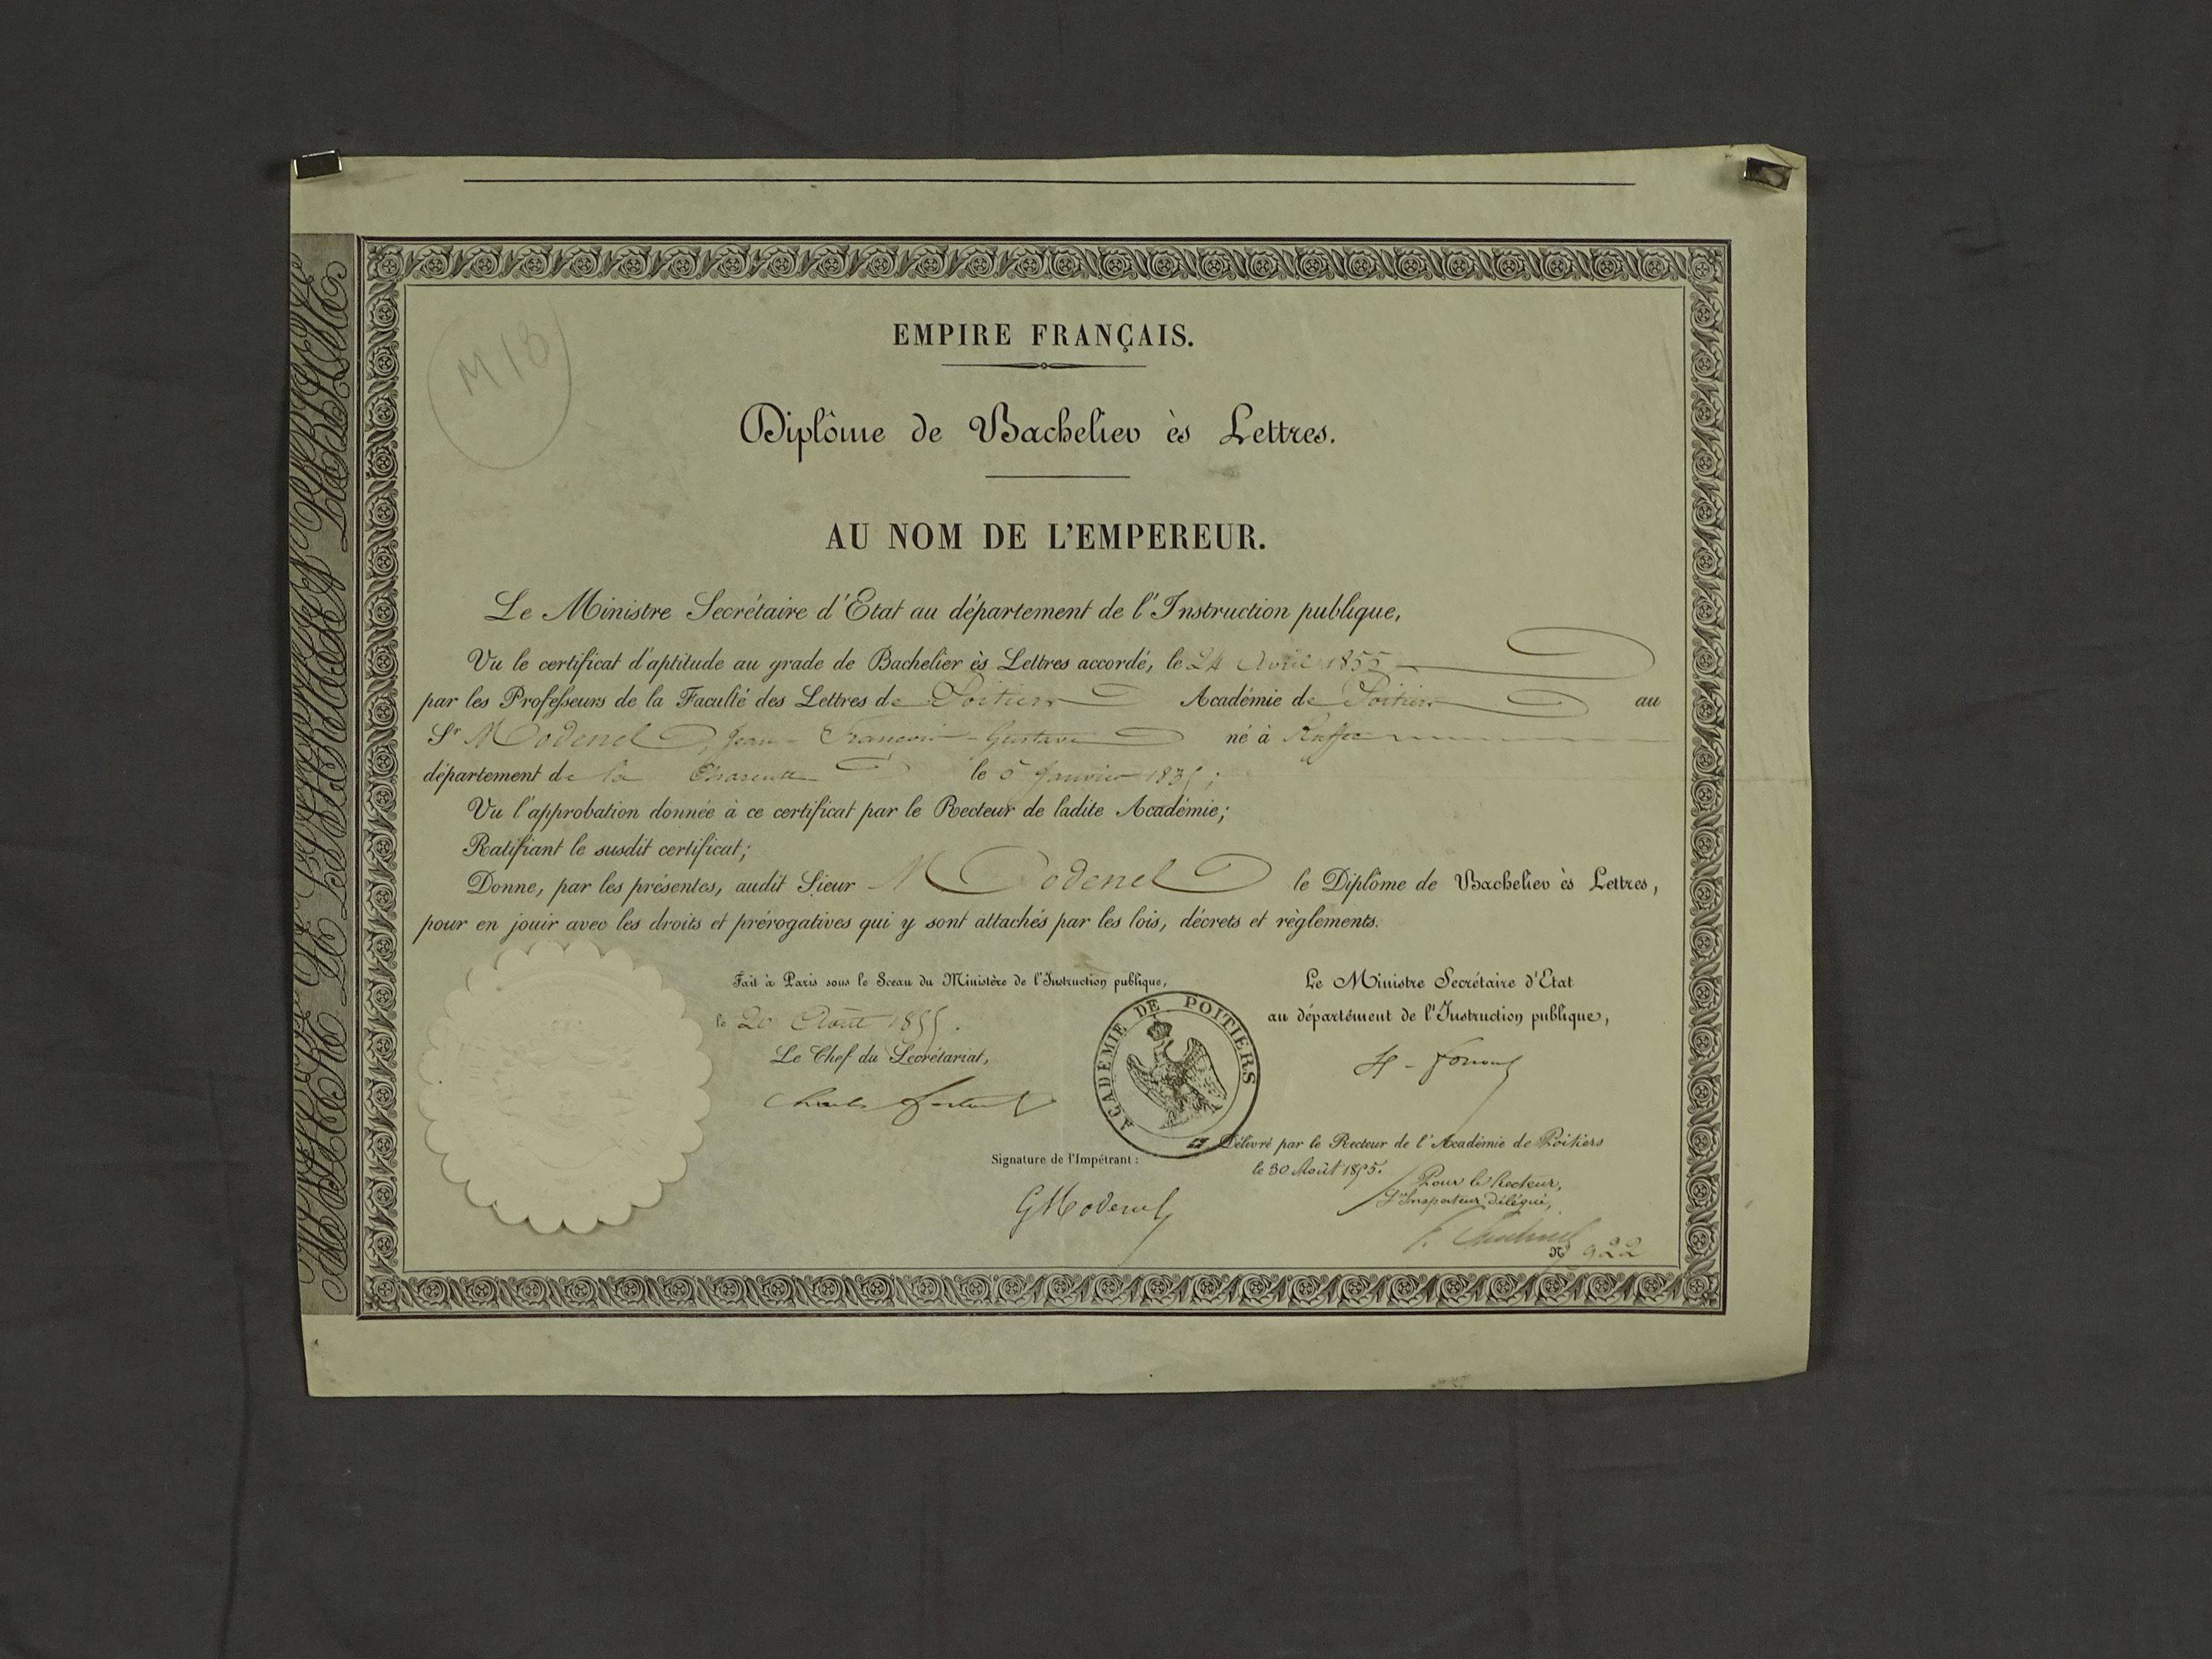 M 18
EMPIRE FRANÇAIS.
Diplôme de Bachelier ès Lettres.
AU NOM DE L'EMPEREUR.
Le Ministre Secrétaire d'Etat au département de l'Instruction publique,
Vu le certificat d'aptitude au grade de Bachelier ès Lettres accordé, le 24 Avril 1855
par les Professeurs de la Faculté des Lettres de Poitiers Académie de Poitiers au
Sr Modenel, Jean-François-Gustave né à Ruffec
département de la Charente le 5 Janvier 1835;
Vu l'approbation donnée à ce certificat par le Recteur de ladite Académie;
Ratifiant le susdit certificat;
Donne, par les présentes, audit Sieur Modenel le Diplôme de Bachelier ès Lettres,
pour en jouir avec les droits et prérogatives qui y sont attachés par les lois, décrets et règlements.
Fait à Paris sous le Sceau du Ministère de l'Instruction publique,
le 20 Août 1855.
Le Chef du Secrétariat,
ACADEMIE DE POITIERS
Le Ministre Secrétaire d'Etat
au département de l'Instruction publique,
H. Fortoul
Délivré par le Recteur de l'Académie de Poitiers
le 30 Août 1855.
Pour le Recteur,
L'Inspecteur délégué,
Signature de l'Impétrant:
GModenel
No 922